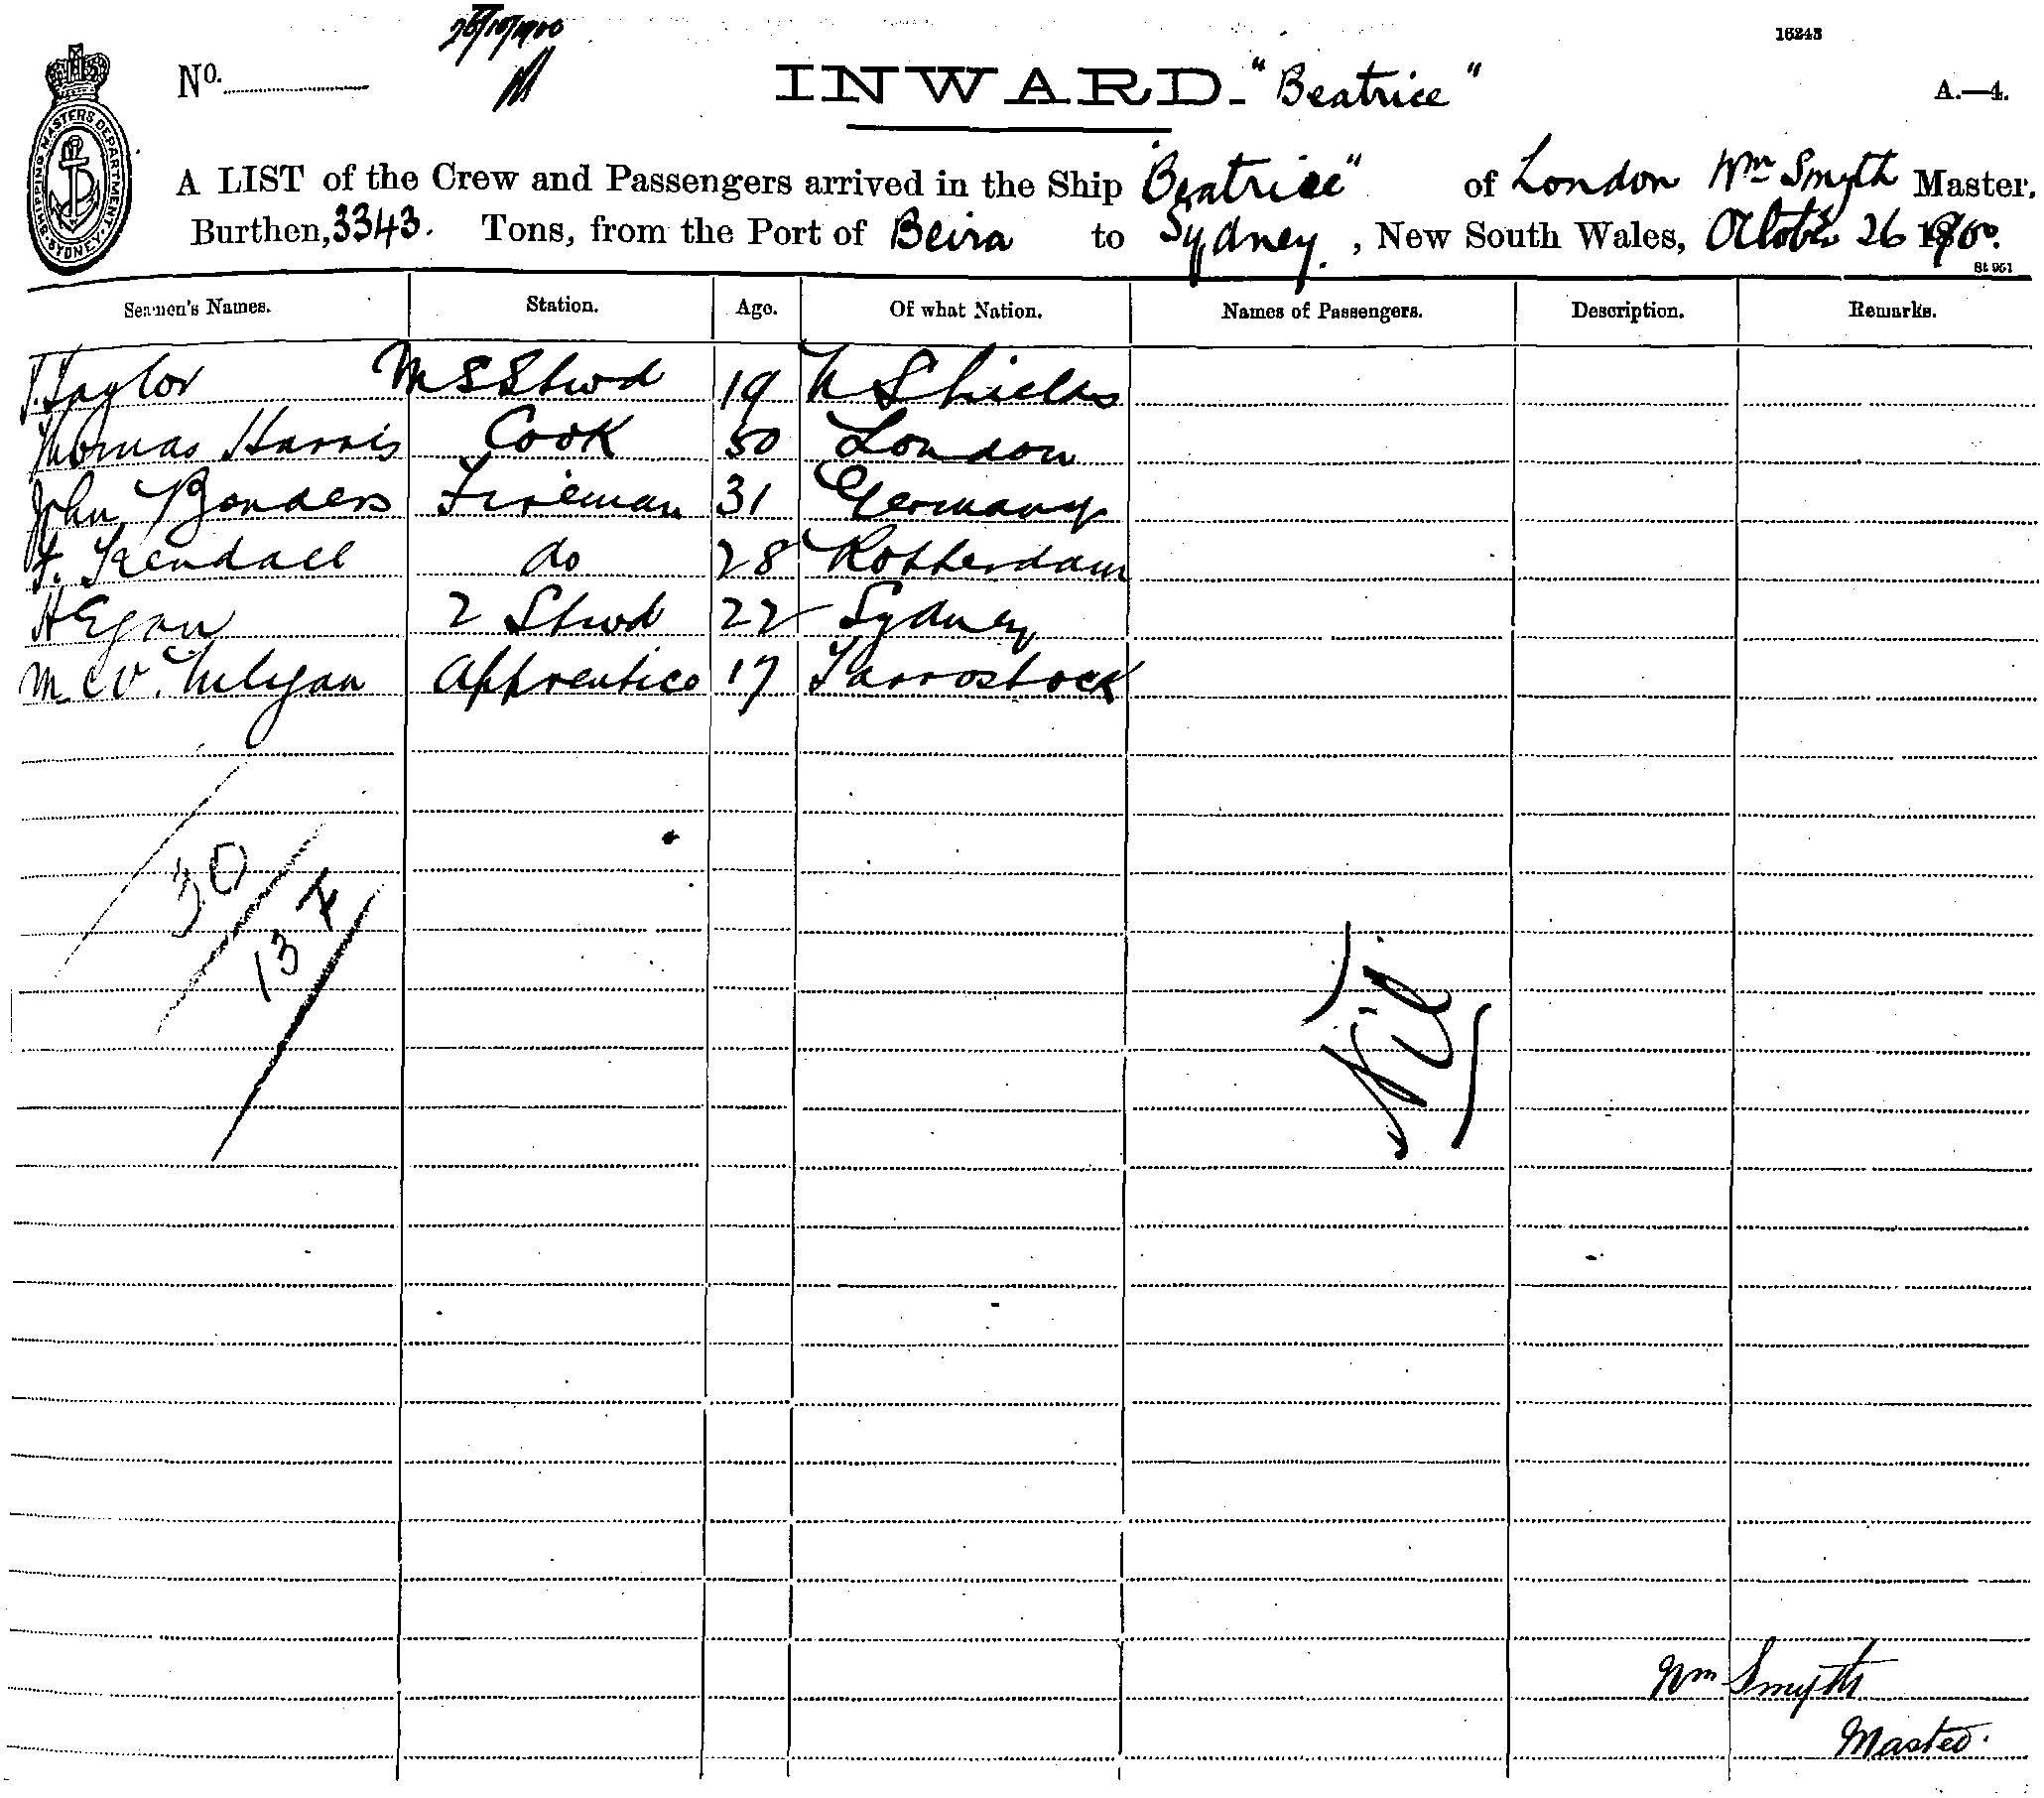 26/10/1900
16243
No.
INWARD. "Beatrice"
A.—4.
SHIPPING MASTERS DEPARTMENT SYDNEY
A LIST of the Crew and Passengers arrived in the Ship "Beatrice" of London Wm Smyth Master.
Burthen, 3343. Tons, from the Port of Beira to Sydney, New South Wales, October 26 1900.
St 951
Seamen's Names. Station. Age. Of what Nation. Names of Passengers. Description. Remarks.
J. Taylor M S Stwd 19 N Shields
Thomas Harris Cook 50 London
John Bonders Fireman 31 Germany
F. Kendall do 28 Rotterdam
H Egan 2 Stwd 22 Sydney
Apprentice 17
30
137
Nil
Wm Smyth
Master.